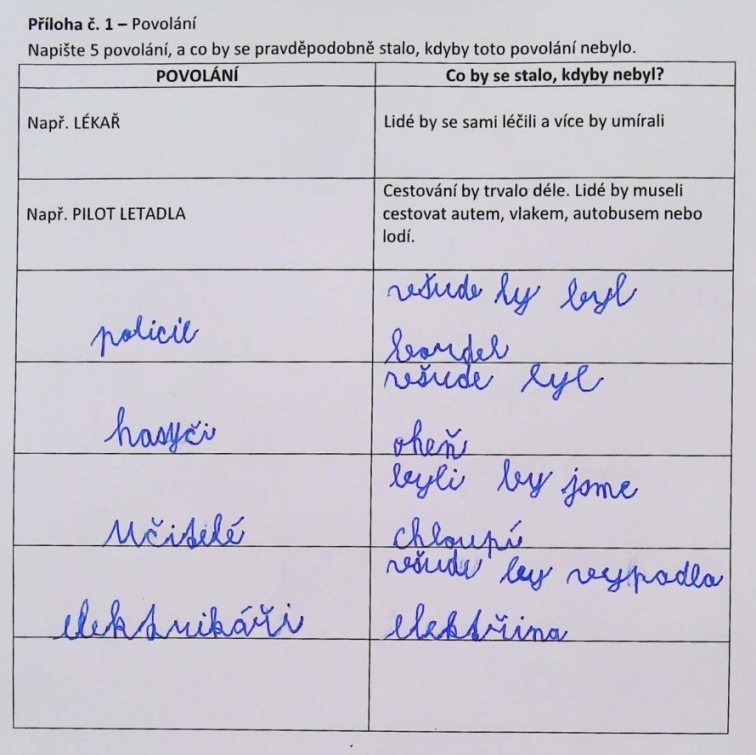 Příloha č. 1 – Povolání
Napište 5 povolání, a co by se pravděpodobně stalo, kdyby toto povolání nebylo.
POVOLÁNÍ
Co by se stalo, kdyby nebyl?
Např. LÉKAŘ
Lidé by se sami léčili a více by umírali
Např. PILOT LETADLA
Cestování by trvalo déle. Lidé by museli
cestovat autem, vlakem, autobusem nebo
lodí.
policie
všude by byl
bordel
hasyči
všude byl
oheň
Učitelé
byli by jsme
chloupí
elektrikáři
všude by vypadla
elektřina